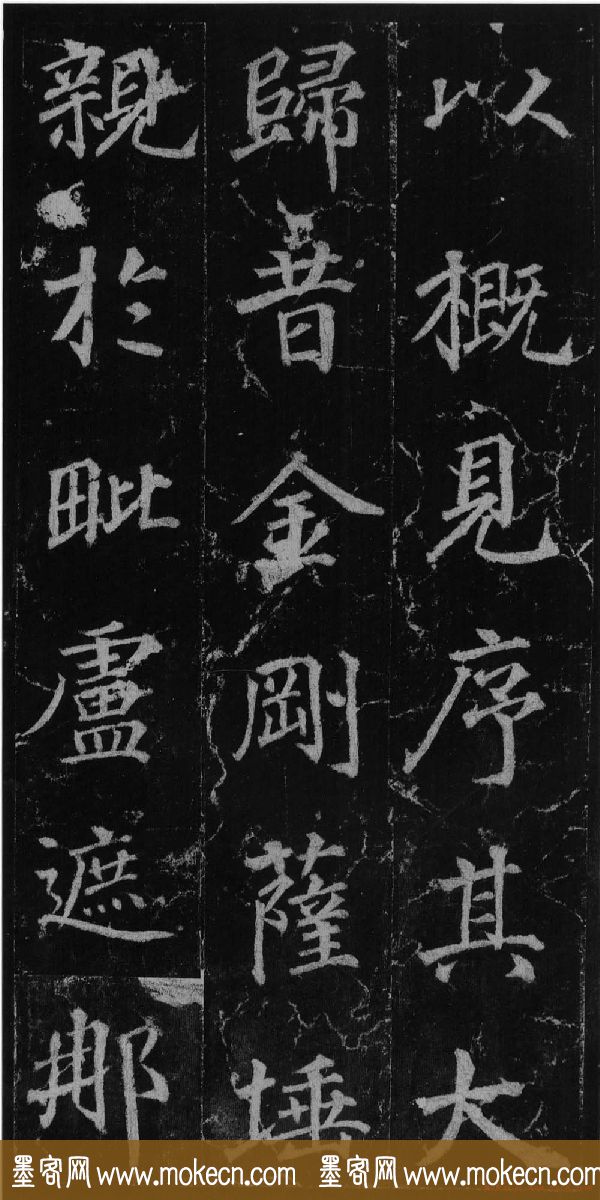 以概見序其大
歸昔金剛薩埵
親於毗盧遮那
墨客网 www.mokecn.com 墨客网 www.mokecn.com